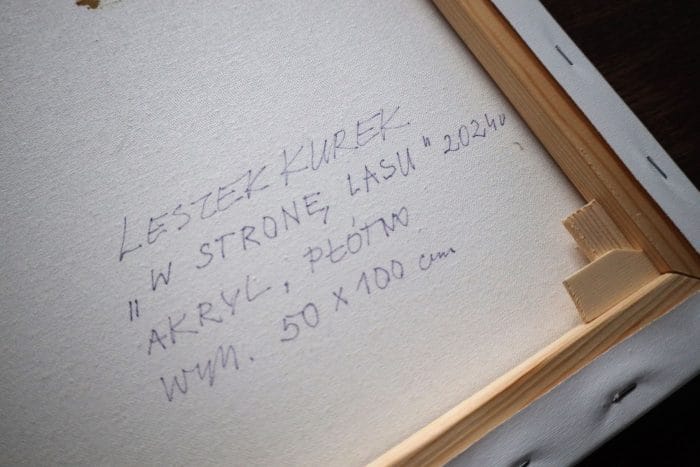 LESZEK KUREK
"W STRONĘ LASU" 2024r
AKRYL, PŁÓTNO.
WYM. 50 X 100 cm